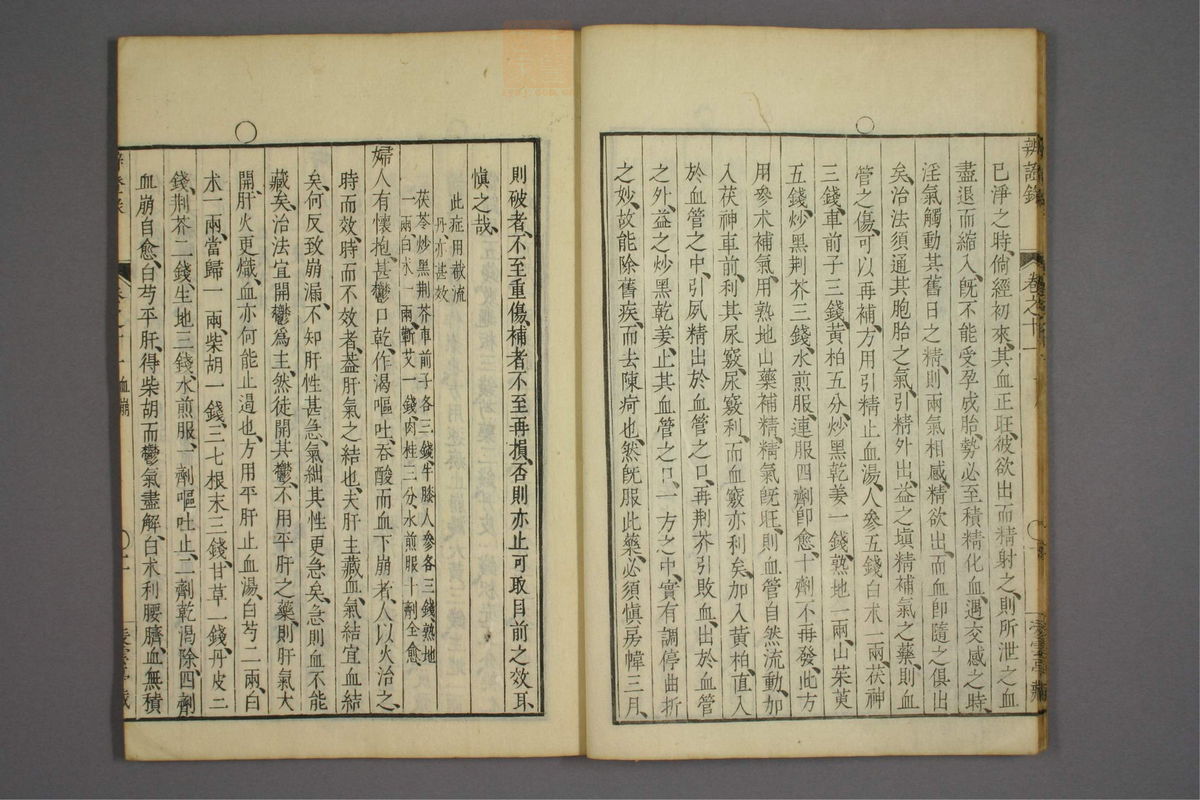 辨證錄 卷之十一
已淨之時、倘經初來、其血正旺、彼欲出而精射之、則所泄之血
盡退而縮入、旣不能受孕成胎、勢必至積精化血、遇交感之時、
淫氣觸動其舊日之精、則兩氣相感、精欲出、而血卽隨之俱出
矣、治法須通其胞胎之氣、引精外出、益之塡精補氣之藥、則血
管之傷、可以再補、方用引精止血湯、人參五錢白朮一兩、茯神
三錢、車前子三錢、黃柏五分、炒黑乾姜一錢、熟地一兩、山茱萸
五錢、炒黑荆芥三錢、水煎服、連服四劑卽愈、十劑不再發、此方
用參朮補氣、用熟地山藥補精、精氣旣旺、則血管自然流動、加
入茯神車前、利其尿竅、尿竅利、而血竅亦利矣、加入黃柏、直入
於血管之中、引夙精出於血管之口、再荆芥引敗血、出於血管
之外、益之炒黑乾姜、止其血管之口、一方之中、實有調停曲折
之妙、故能除舊疾、而去陳疴也、然旣服此藥、必須愼房幃三月、
則破者、不至重傷、補者不至再損、否則亦止可取目前之效耳、
愼之哉、
此症用截流
丹亦甚效
茯苓炒黑荆芥車前子各三錢、牛膝人參各三錢、熟地
一兩、白朮一兩、蘄艾一錢、肉桂三分、水煎服十劑全愈、
婦人有懷抱、甚鬱口乾、作渴嘔吐、吞酸而血下崩者、人以火治之、
時而效、時而不效者、葢肝氣之結也、夫肝主藏血、氣結宜血結
矣、何反致崩漏、不知肝性甚急、氣結其性更急矣、急則血不能
藏矣、治法宜開鬱爲主、然徒開其鬱、不用平肝之藥、則肝氣大
開、肝火更熾、血亦何能止遏也、方用平肝止血湯、白芍二兩、白
朮一兩、當歸一兩、柴胡一錢、三七根末三錢、甘草一錢、丹皮三
錢、荆芥二錢、生地三錢、水煎服、一劑嘔吐止、二劑乾渴除、四劑
血崩自愈、白芍平肝、得柴胡而鬱氣盡解、白朮利腰臍、血無積